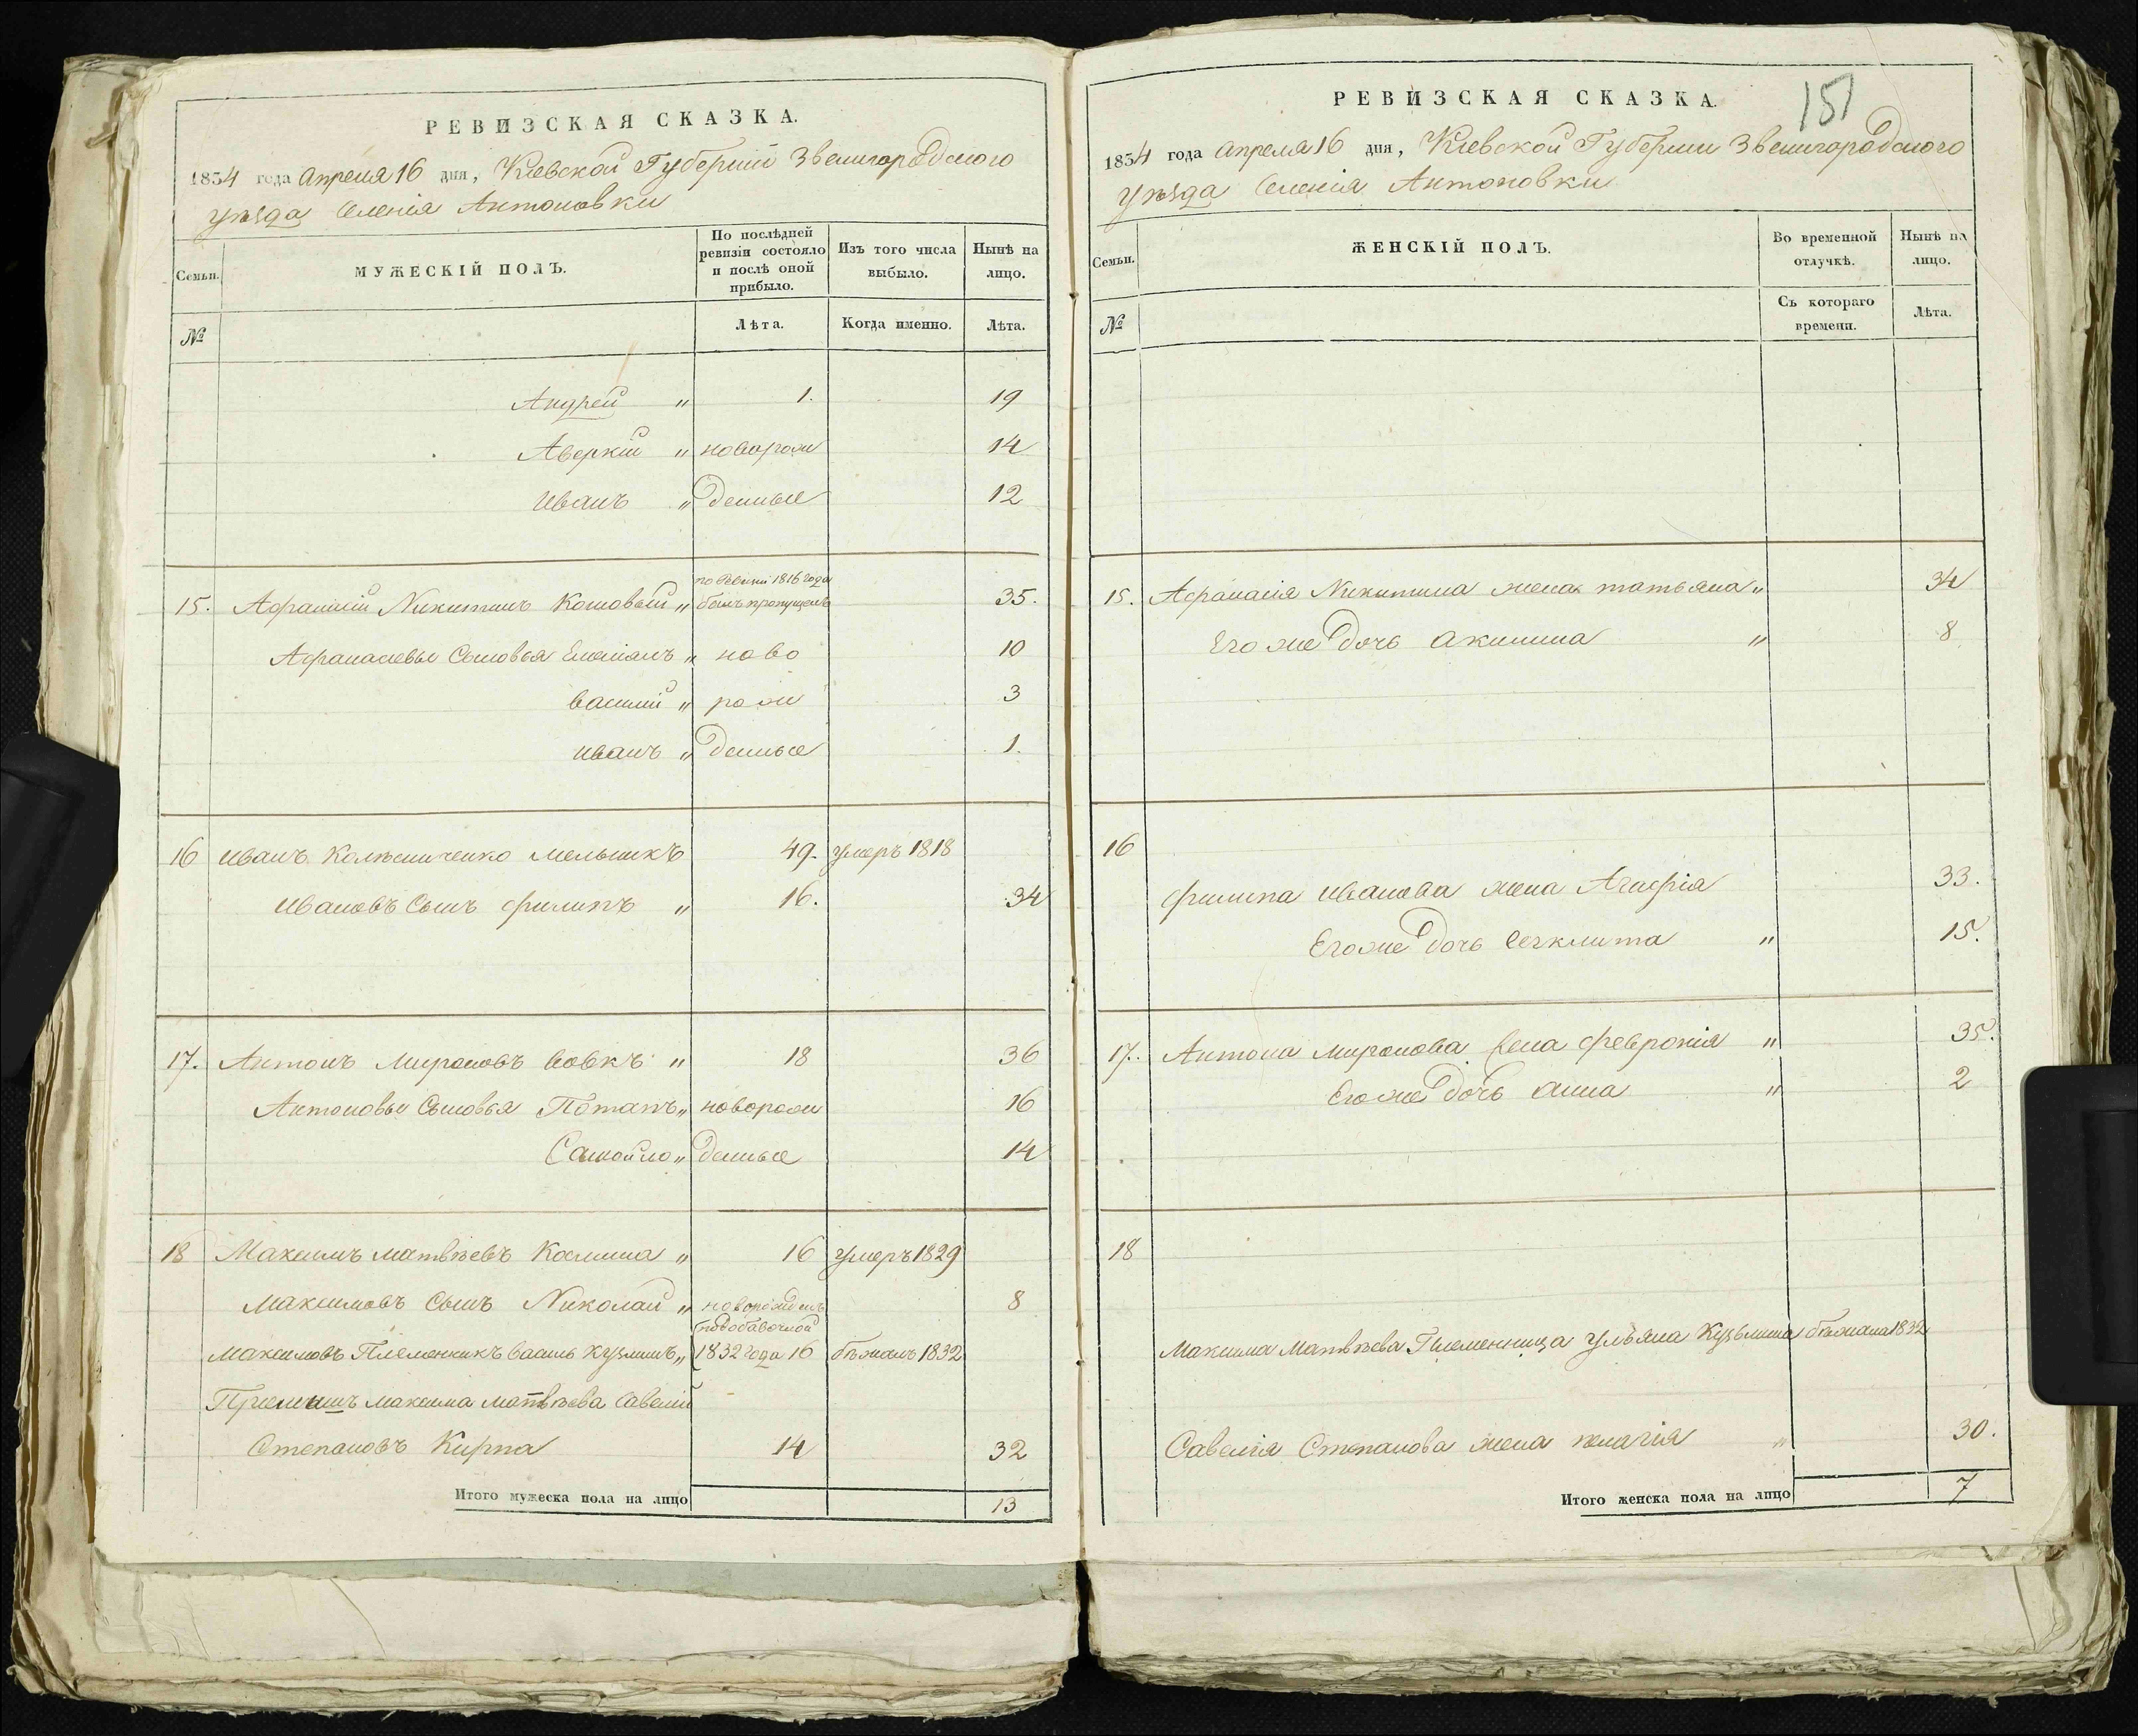 РЕВИЗСКАЯ СКАЗКА.
1834 года Апреля 16 дня, Кіевской Губерніи Звенигородского
уѣзда Селенія Антоновки
Семьи.
МУЖЕСКІЙ ПОЛЪ.
По послѣдней ревизіи состояло и послѣ оной прибыло.
Изъ того числа выбыло.
Нынѣ на лицо.
№
Лѣта.
Когда именно.
Лѣта.
Андрей " 1. 19
Аверкій " новорож 14
Иванъ " денные 12
по Ревизіи 1816 года
15. Афанасій Никитинъ Кошовый " былъ пропущенъ 35.
Афанасіевы Сыновья Емеліанъ " ново 10
Василій " рож 3
Иванъ " денные 1.
16 Иванъ Колѣсниченко Мельникъ 49. умеръ 1818
Ивановъ Сынъ Филипъ " 16. 34
17. Антонъ Мироновъ Вовкъ " 18 36
Антоновы Сыновья Потапъ " новорож 16
Самойло " денные 14
18 Максимъ Матвѣевъ " 16 умеръ 1829
Максимовъ Сынъ Николай " новорожденъ 8
Максимовъ Племенникъ Василь Кузминъ " 1832 года 16 бѣжалъ 1832
Приемышъ Максима Матвѣева Савелій
Степановъ Кирпа 14 32
Итого мужеска пола на лицо 13
151
РЕВИЗСКАЯ СКАЗКА.
1834 года Апреля 16 дня, Кіевской Губерніи Звенигородского
уѣзда Селенія Антоновки
Семьи.
ЖЕНСКІЙ ПОЛЪ.
Во временной отлучкѣ.
Нынѣ на лицо.
№
Съ котораго времени.
Лѣта.
15. Афанасія Никитина жена татьяна " 34
Его же дочь Акилина " 8
16
Филипа Иванова жена Агафія 33.
Его же дочь 15.
17. Антона Миронова жена Февронія " 35.
Его же дочь Анна " 2
18
Максима Матвѣева Племенница Ульяна Кузьмина бѣжала 1832
Савелія Степанова жена пелагія " 30.
Итого женска пола на лицо 7